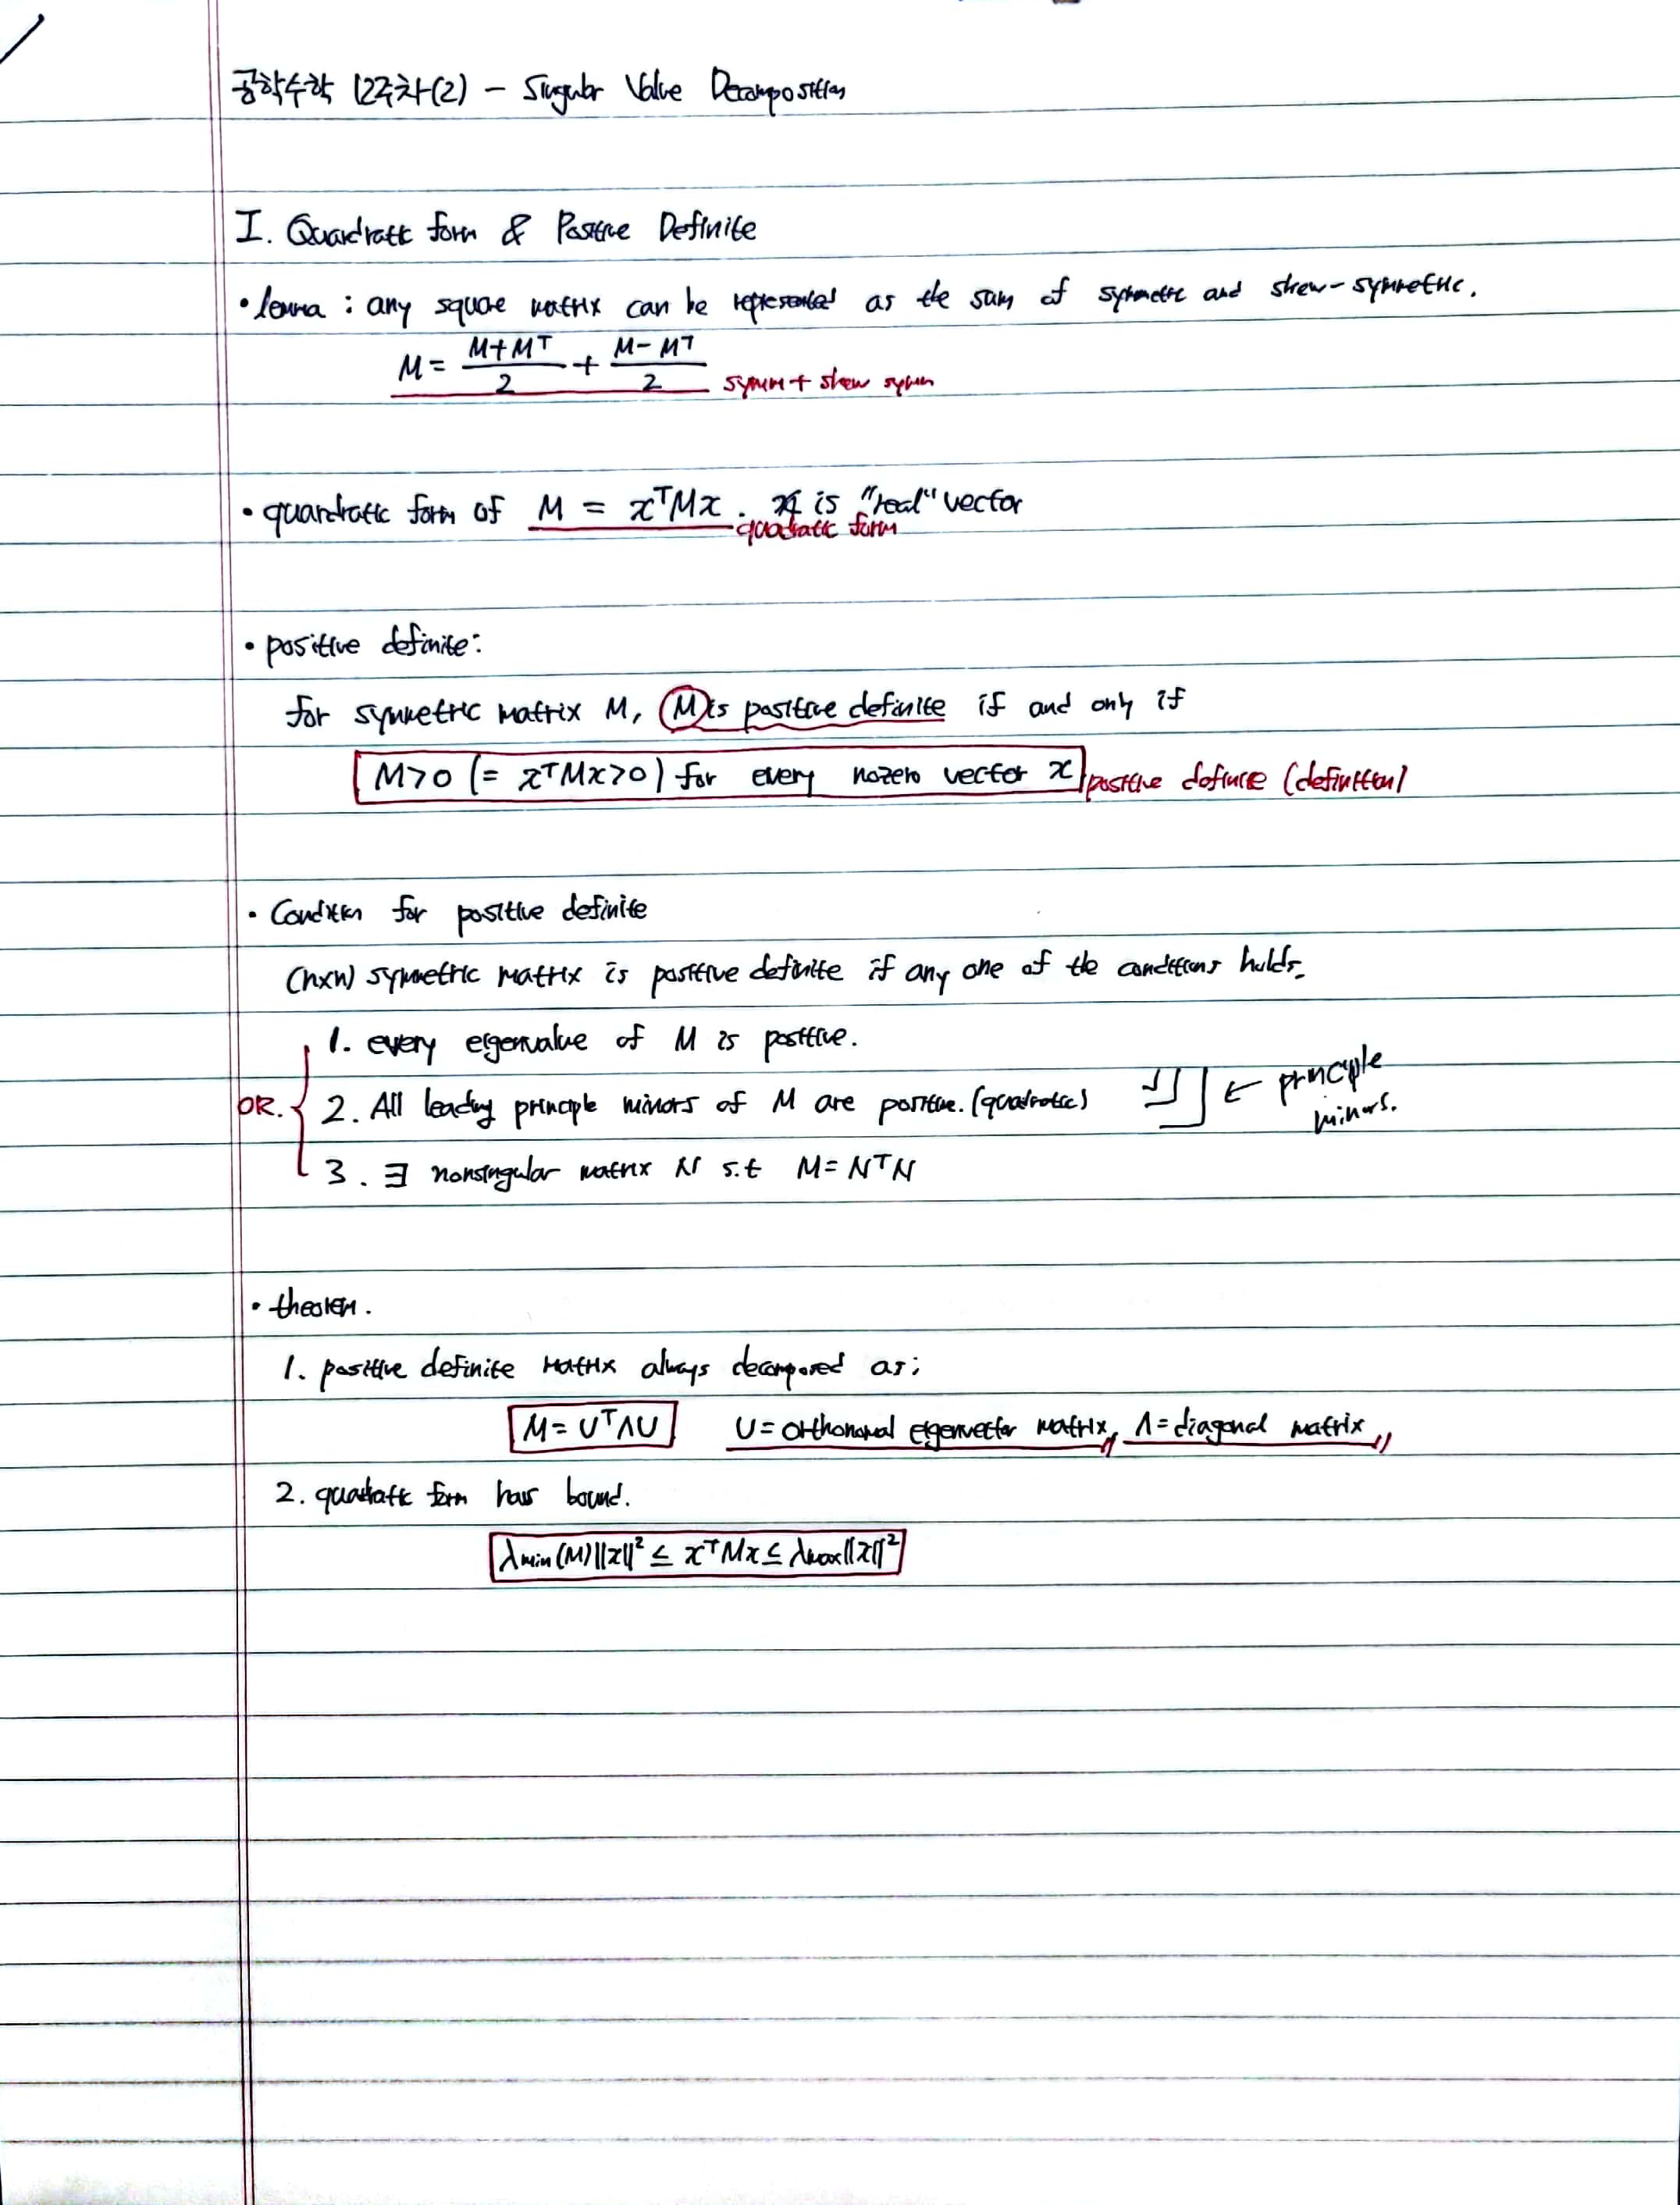 공학수학 12주차(2) - Singular Value Decomposition
I. Quardratic form & Positive Definite
• lemma : any square matrix can be represented as the sum of symmetric and skew-symmetric.
M = (M+Mᵀ)/2 + (M-Mᵀ)/2 symm + skew symm
• quardratic form of M = xᵀMx . x is "real" vector
quadratic form
• positive definite:
for symmetric matrix M, M is positive definite if and only if
M>0 (= xᵀMx>0) for every nozero vector x positive definite (definition)
• Condition for positive definite
(nxn) symmetric matrix is positive definite if any one of the conditions holds.
1. every eigenvalue of M is positive.
OR. 2. All leading principle minors of M are positive. (quadratic) ← principle minors.
3. ∃ nonsingular matrix N s.t M = NᵀN
• theorem.
1. positive definite matrix always decomposed as;
M = UᵀΛU U = orthonormal eigenvector matrix, Λ = diagonal matrix
2. quadratic form has bound.
λmin(M)||x||² ≤ xᵀMx ≤ λmax||x||²